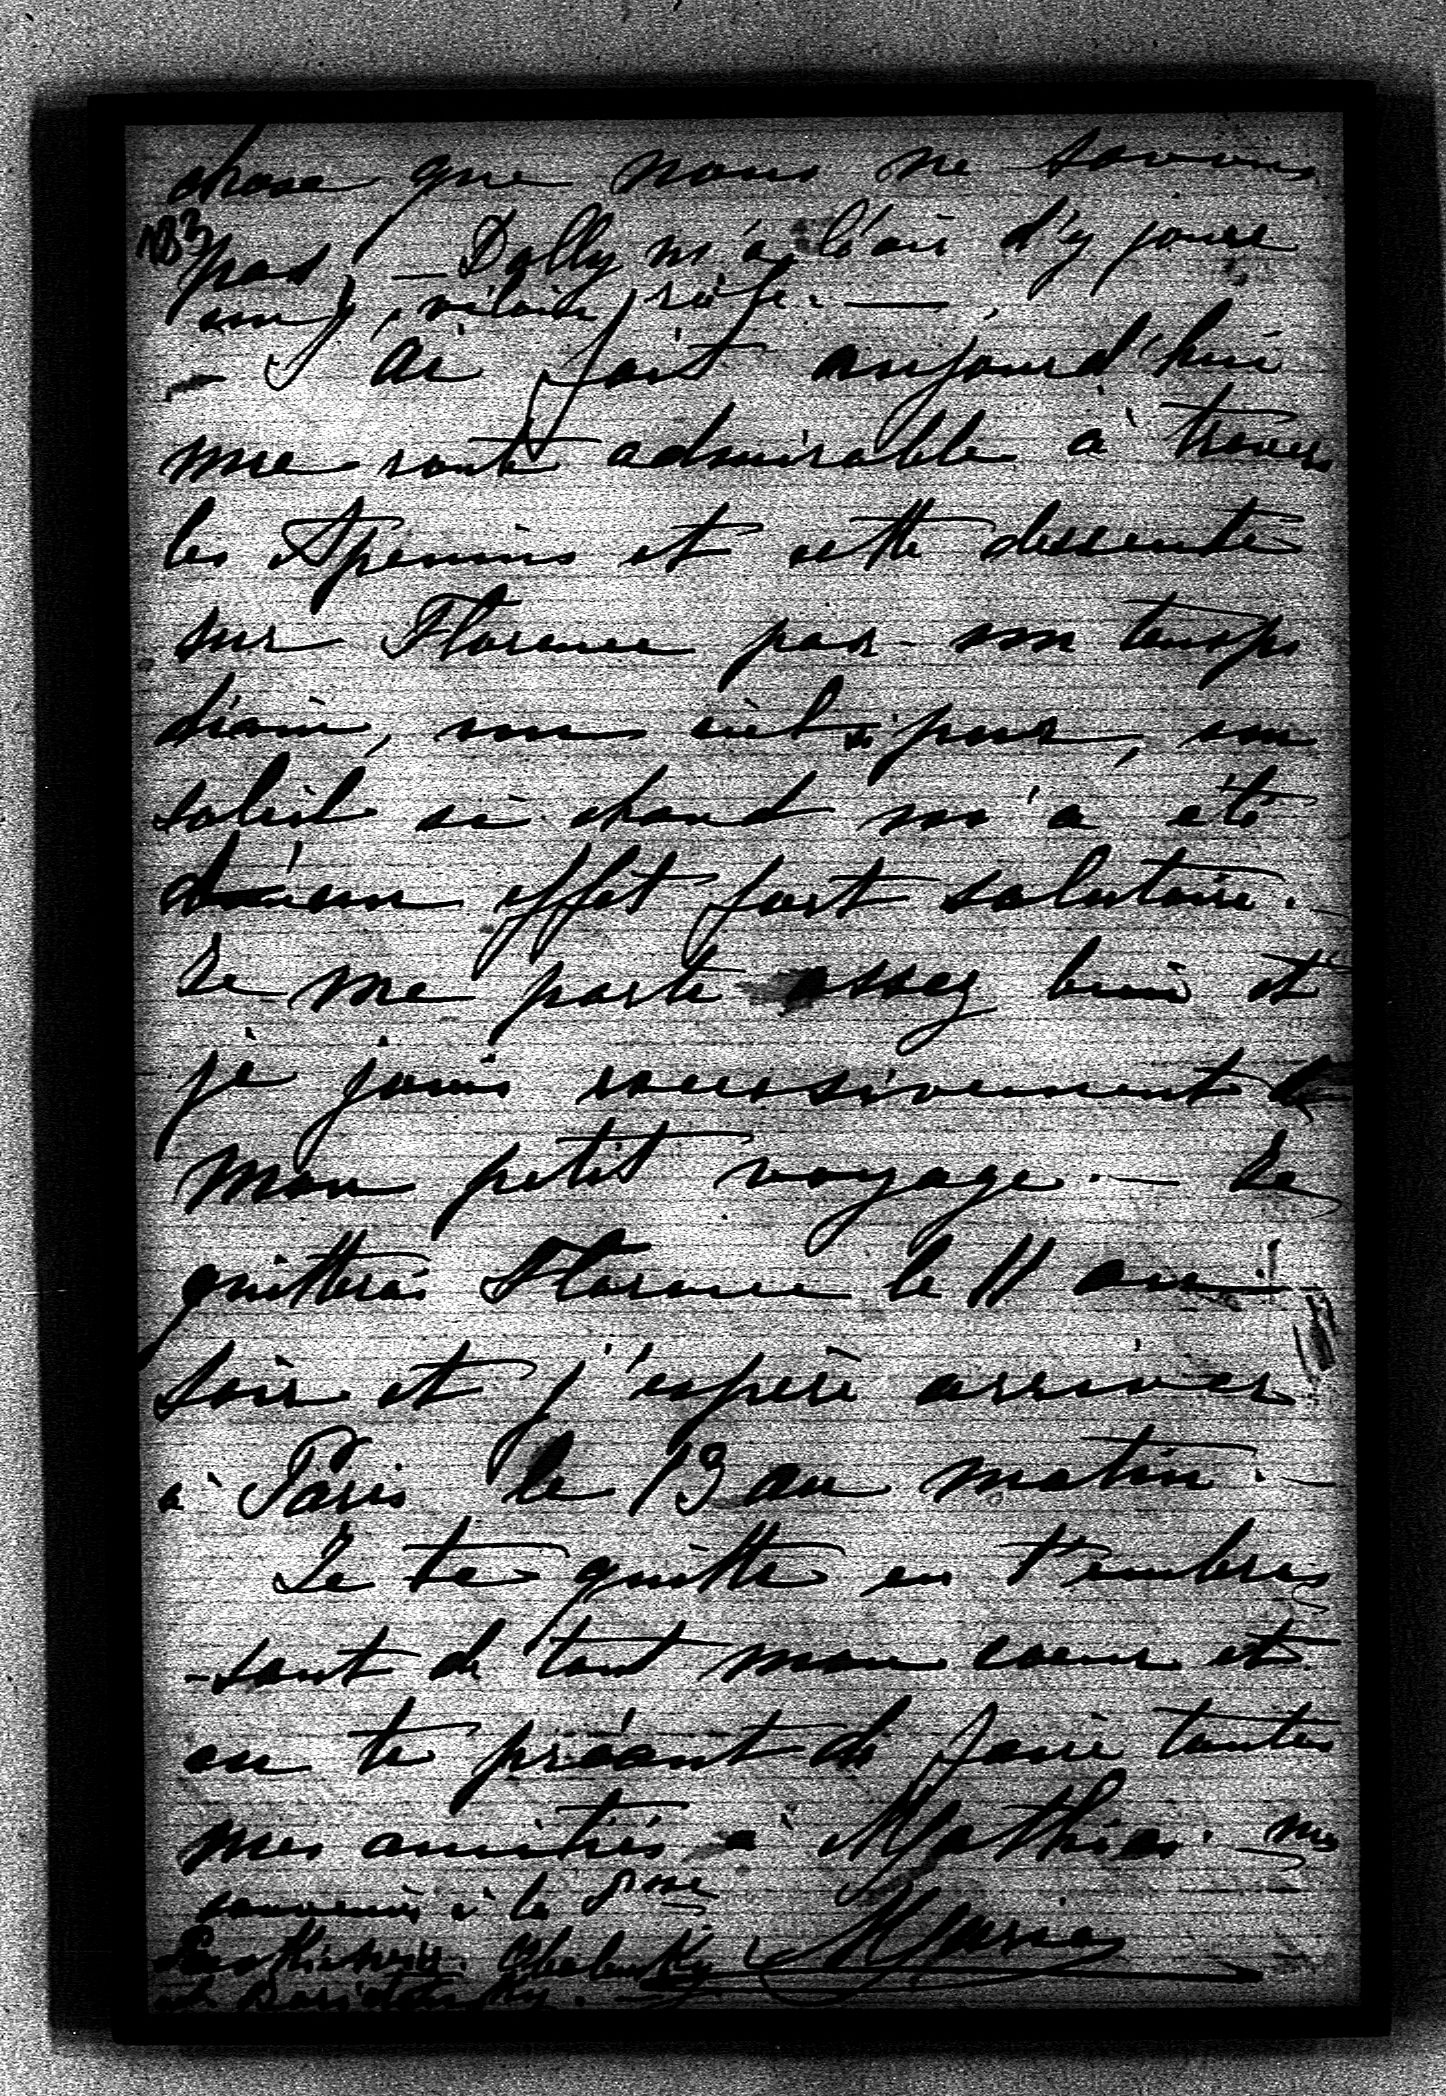 chose que nous ne savons
183
pas, — Dolly m'a l'air d'y jouer
un vilain rôle. —
— J'ai fait aujourd'hui
une route admirable à travers
les Apenins et cette dessente
sur Florence par un temps
divin, un ciel si pur, un
soleil si chaud m'a été
d'un effet fort salutaire. —
Je me porte assez bien et
je jouis excessivement de
mon petit voyage. — Je
quitterai Florence le 11 au
soir et j'espère arriver
à Paris le 13 au matin. —
Je te quitte en t'embras
-sant de tout mon coeur et
en te priant de faire toutes
mes amitiés à Mathias. mes
souvenirs à la
Maria